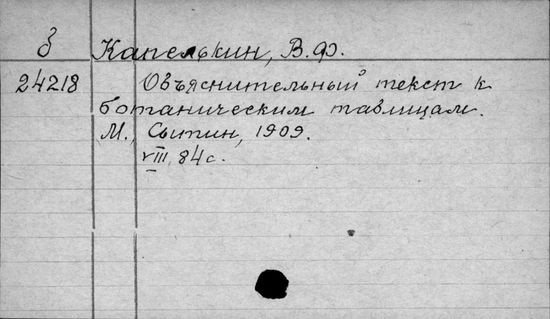 б Капелькин, В.Ф.
24218 Объяснительный текст к
ботаническим таблицам.
М., Сытин, 1909.
VIII, 84с.